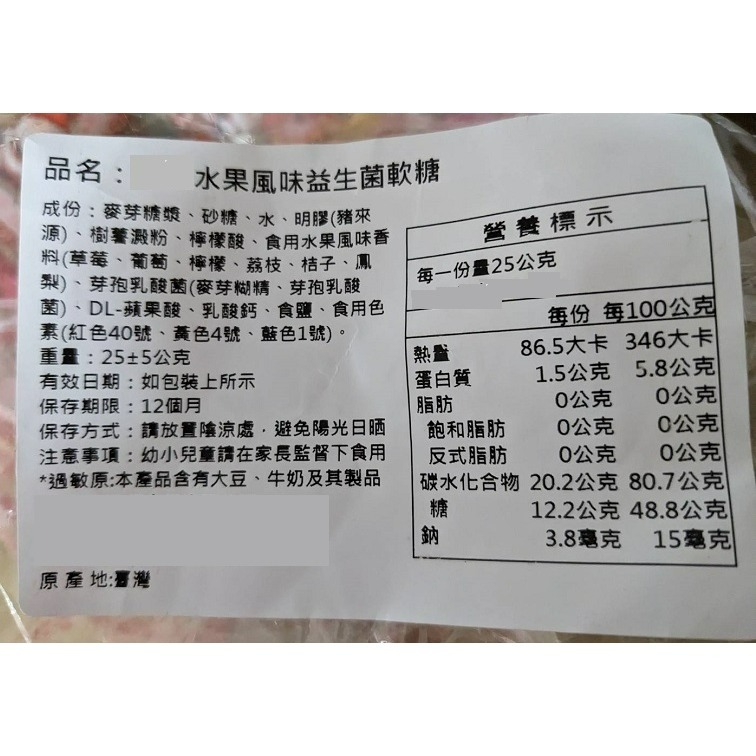 品名： 水果風味益生菌軟糖
成份：麥芽糖漿、砂糖、水、明膠(豬來
源)、樹薯澱粉、檸檬酸、食用水果風味香
料(草莓、葡萄、檸檬、荔枝、桔子、鳳
梨)、芽孢乳酸菌(麥芽糊精、芽孢乳酸
菌)、DL-蘋果酸、乳酸鈣、食鹽、食用色
素(紅色40號、黃色4號、藍色1號)。
重量：25±5公克
有效日期：如包裝上所示
保存期限：12個月
保存方式：請放置陰涼處，避免陽光日晒
注意事項：幼小兒童請在家長監督下食用
*過敏原:本產品含有大豆、牛奶及其製品
原產地:臺灣
營養標示
每一份量25公克
每份 每100公克
熱量 86.5大卡 346大卡
蛋白質 1.5公克 5.8公克
脂肪 0公克 0公克
飽和脂肪 0公克 0公克
反式脂肪 0公克 0公克
碳水化合物 20.2公克 80.7公克
糖 12.2公克 48.8公克
鈉 3.8毫克 15毫克